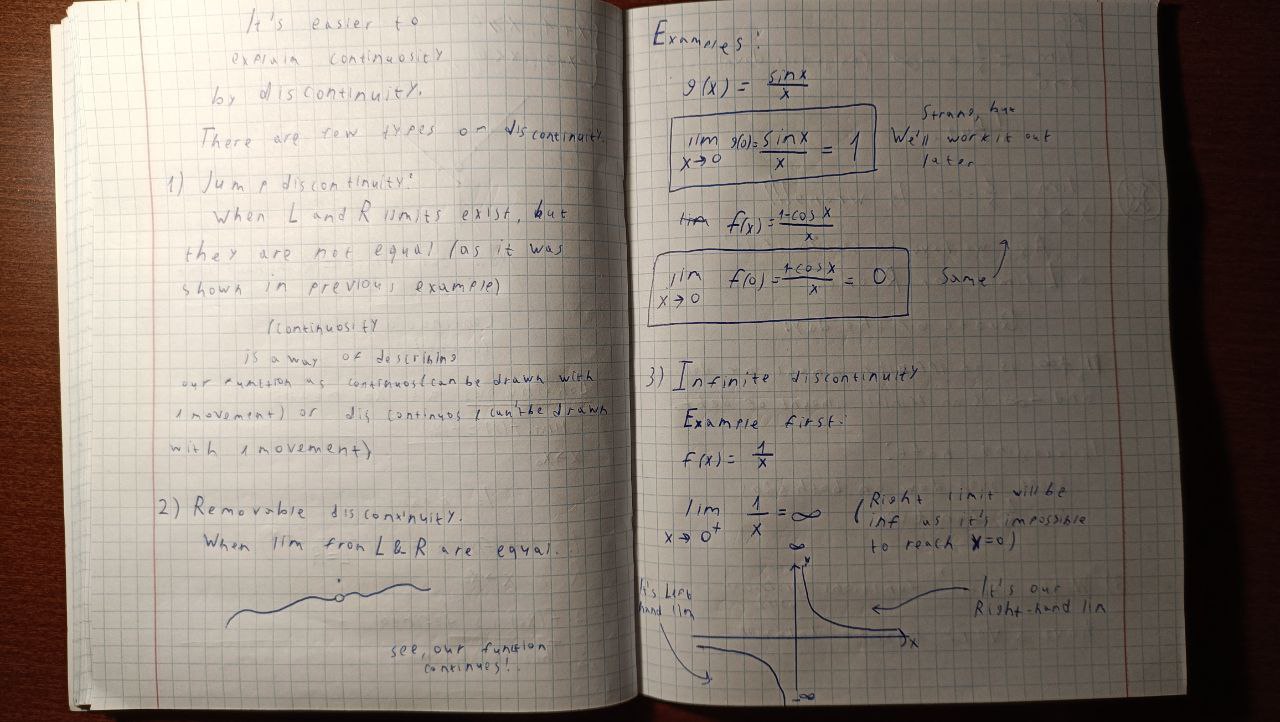 It's easier to
explain continuosity
by discontinuity.
There are few types on discontinuity.
1) Jump discontinuity:
When L and R limits exist, but
they are not equal (as it was
shown in previous example)
(continuosity
is a way of describing
our function as continuos (can be drawn with
1 movement) or dis continuos (can't be drawn
with 1 movement)
2) Removable discontinuity.
When lim from L & R are equal.
see, our function
continues!
Examples:
g(x) = sinx/x
lim x→0 g(0) = sinx/x = 1
Strang, but
We'll work it out
later
lim f(x) = 1-cosx/x
lim x→0 f(0) = 1-cosx/x = 0
Same
3) Infinite discontinuity
Example first:
f(x) = 1/x
lim x→0⁺ 1/x = ∞
(Right limit will be
inf as it's impossible
to reach x=0)
∞
It's Left
hand lim
It's our
Right-hand lim
x
-∞